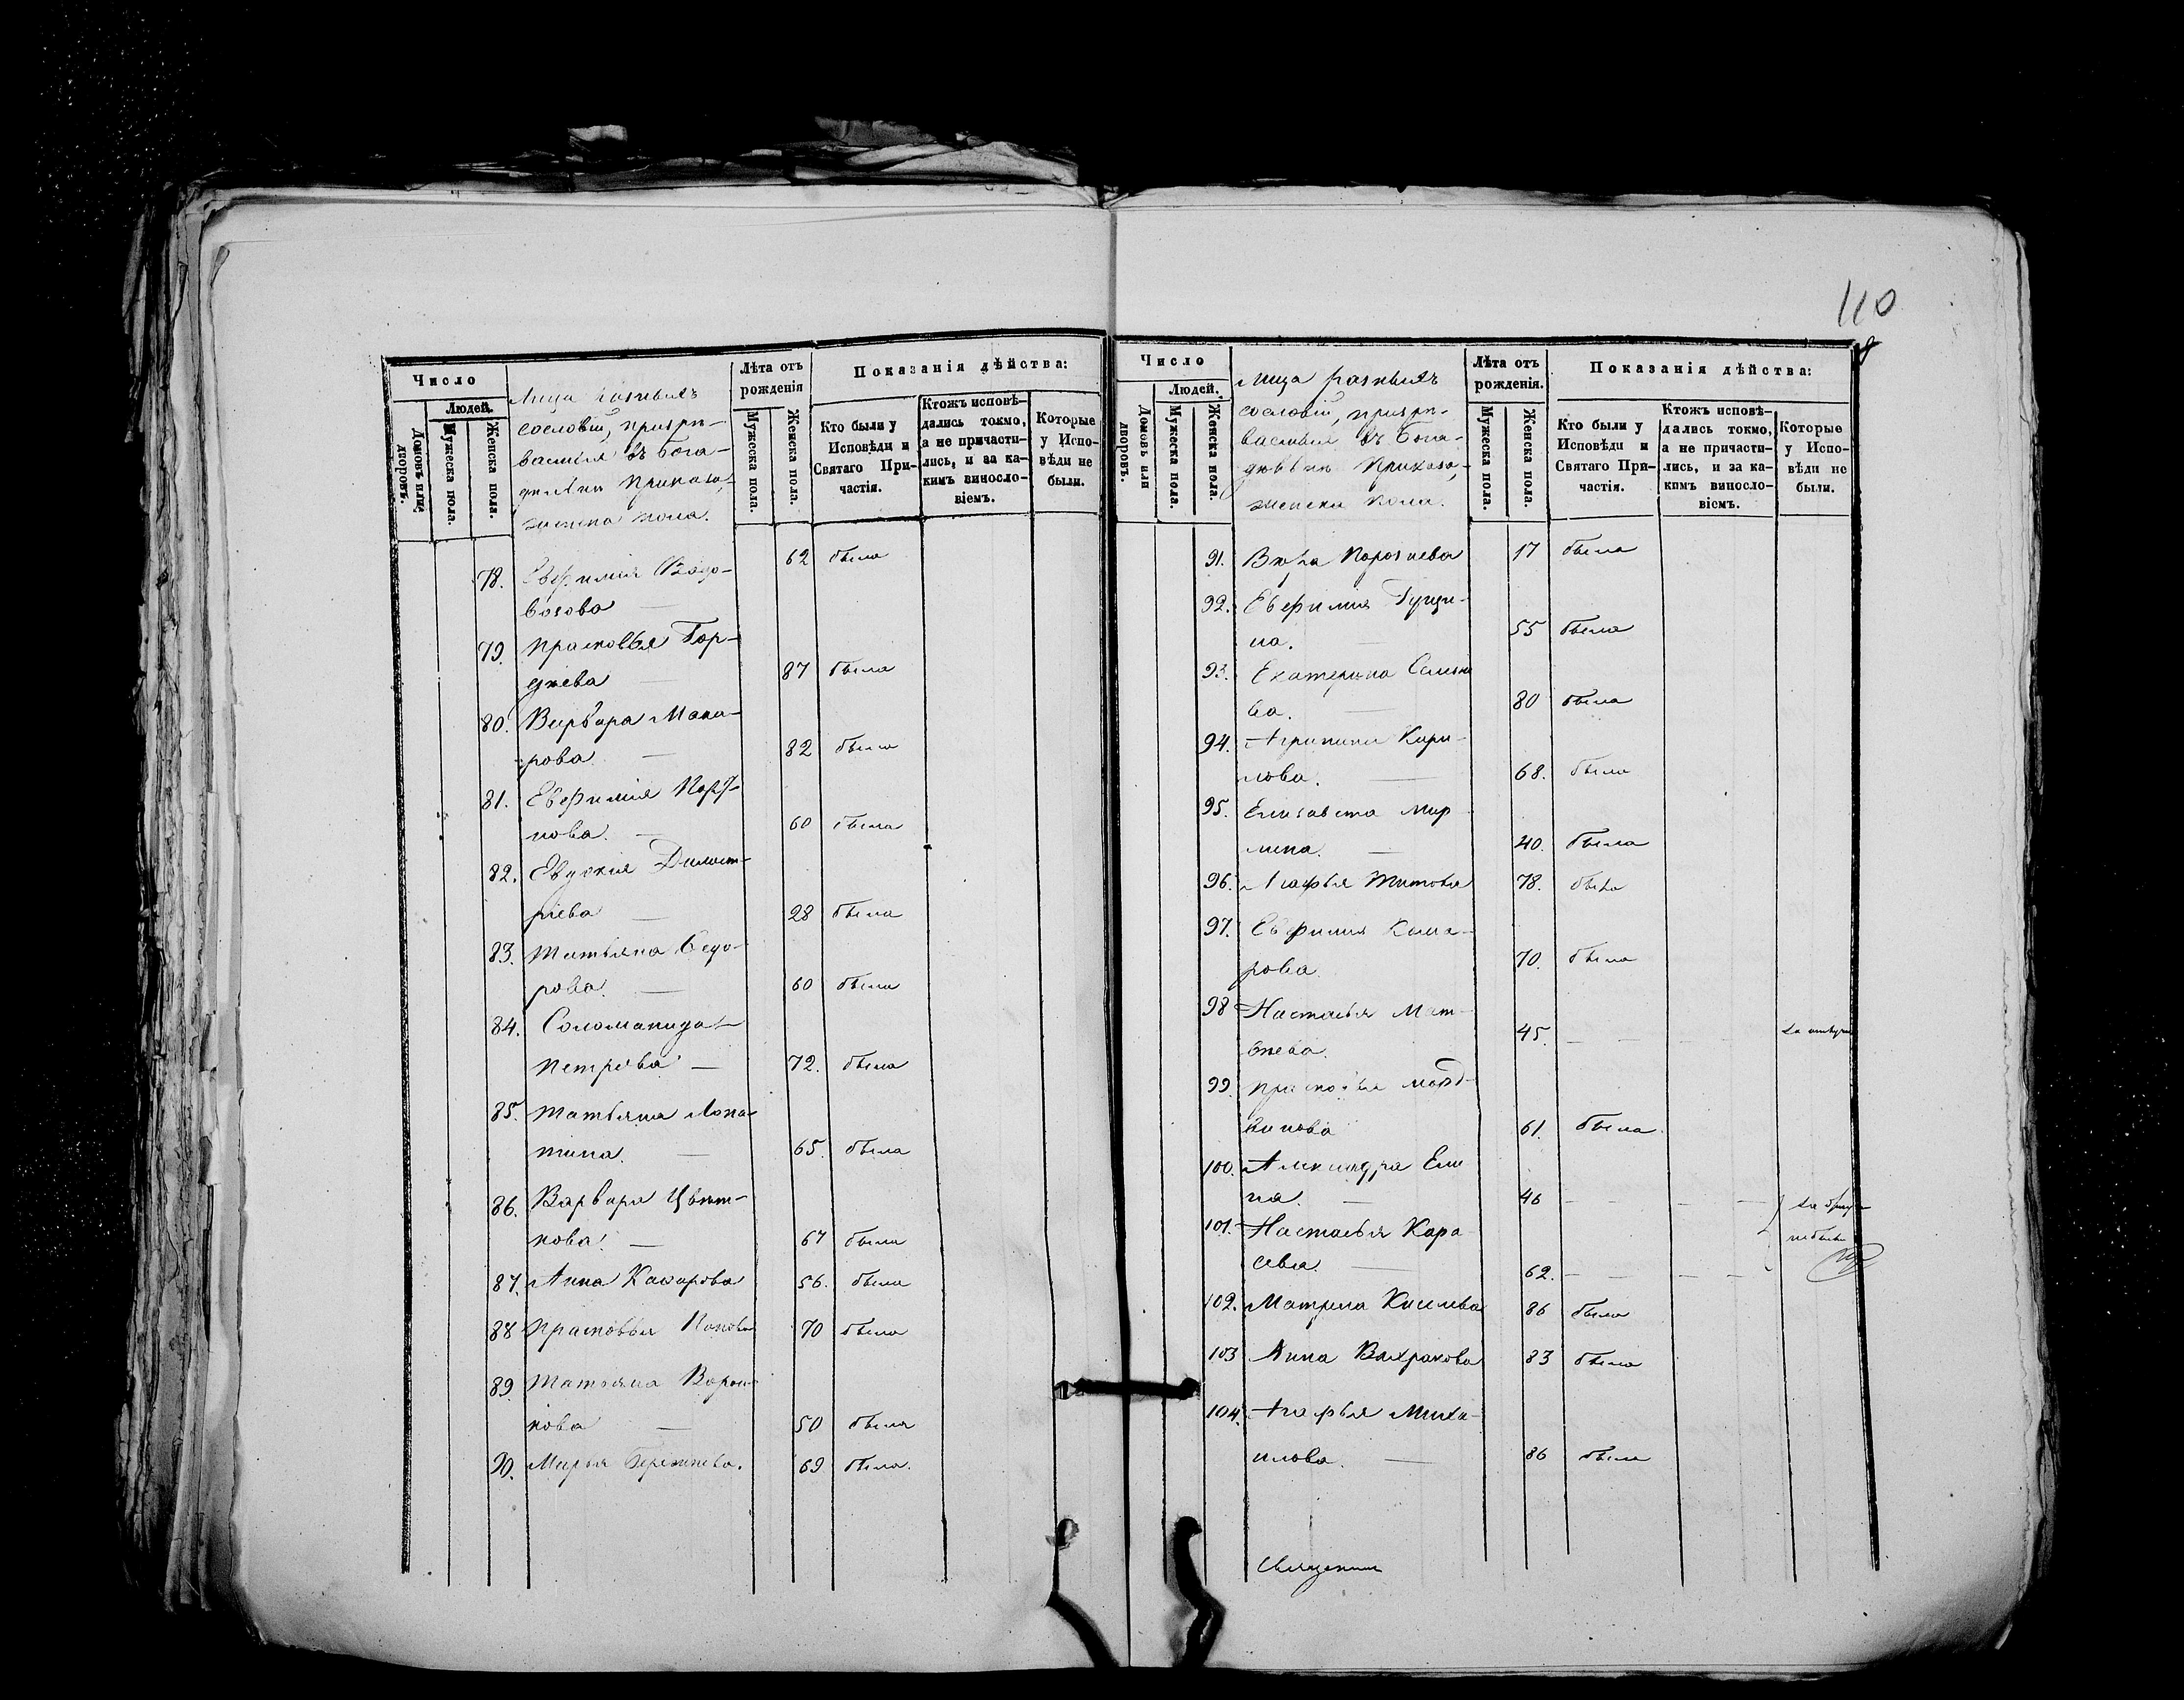 110
Число
Людей.
Домовъ или дворовъ.
Мужеска пола.
Женска пола.
Лица разныхъ
сословій, призри-
ваемыя въ Бога-
дѣльни Приказа,
женска пола.
Лѣта отъ
рожденія
Мужеска пола.
Женска пола.
Показанія дѣйства:
Кто были у
Исповѣди и
Святаго При-
частія.
Ктожъ исповѣ-
дались токмо,
а не причасти-
лись, и за ка-
кимъ виносло-
віемъ.
Которые
у Испо-
вѣди не
были.
78. Евфимія Водо-
возова — 62 была
79. Прасковья Гор-
дѣева — 87 была
80. Варвара Мака-
рова — 82 была
81. Евфимія
нова. — 60 была
82. Евдокія Димит-
ріева — 28 была
83. Татьяна Ѳедо-
рова. — 60 была
84. Соломанида
Петрова — 72. была
85. Татьяна Лопа-
тина. — 65. была
86. Варвара Цвѣт-
кова. — 67 была
87. Анна Казарова 56. была
88 Прасковья Попова 70 была
89. Татьяна Ворон-
кова — 50 была
90. Марья 69 была.
Число
Людей.
Домовъ или дворовъ.
Мужеска пола.
Женска пола.
Лица разныхъ
сословій, призри-
ваемыя въ Бога-
дѣльни Приказа,
женска пола.
Лѣта отъ
рожденія.
Мужеска пола.
Женска пола.
Показанія дѣйства:
Кто были у
Исповѣди и
Святаго При-
частія.
Ктожъ исповѣ-
дались токмо,
а не причасти-
лись, и за ка-
кимъ виносло-
віемъ.
Которые
у Испо-
вѣди не
были.
91. Вѣра 17 была
92. Евфимія Гущи-
на. — 55 была
93. Екатерина
ва. — 80 была
94. Агрипина Кири-
лова. — 68. была
95. Елизавета
лина. — 40. была
96. Агафья Титова 78. была
97. Евфимия Кома-
рова. 70. была
98 Настасья Мат-
вѣева. 45. — —
99. Прасковья Морд-
винова 61. была
100. Александра Ели
на. — 46 — — —
101. Настасья Кара
сева. — 62. — — — —
102. Матрена Киселева 86 была
103 Анна Вахракова 83 была
104. Агафья Миха-
илова. — 86 была
Священникъ